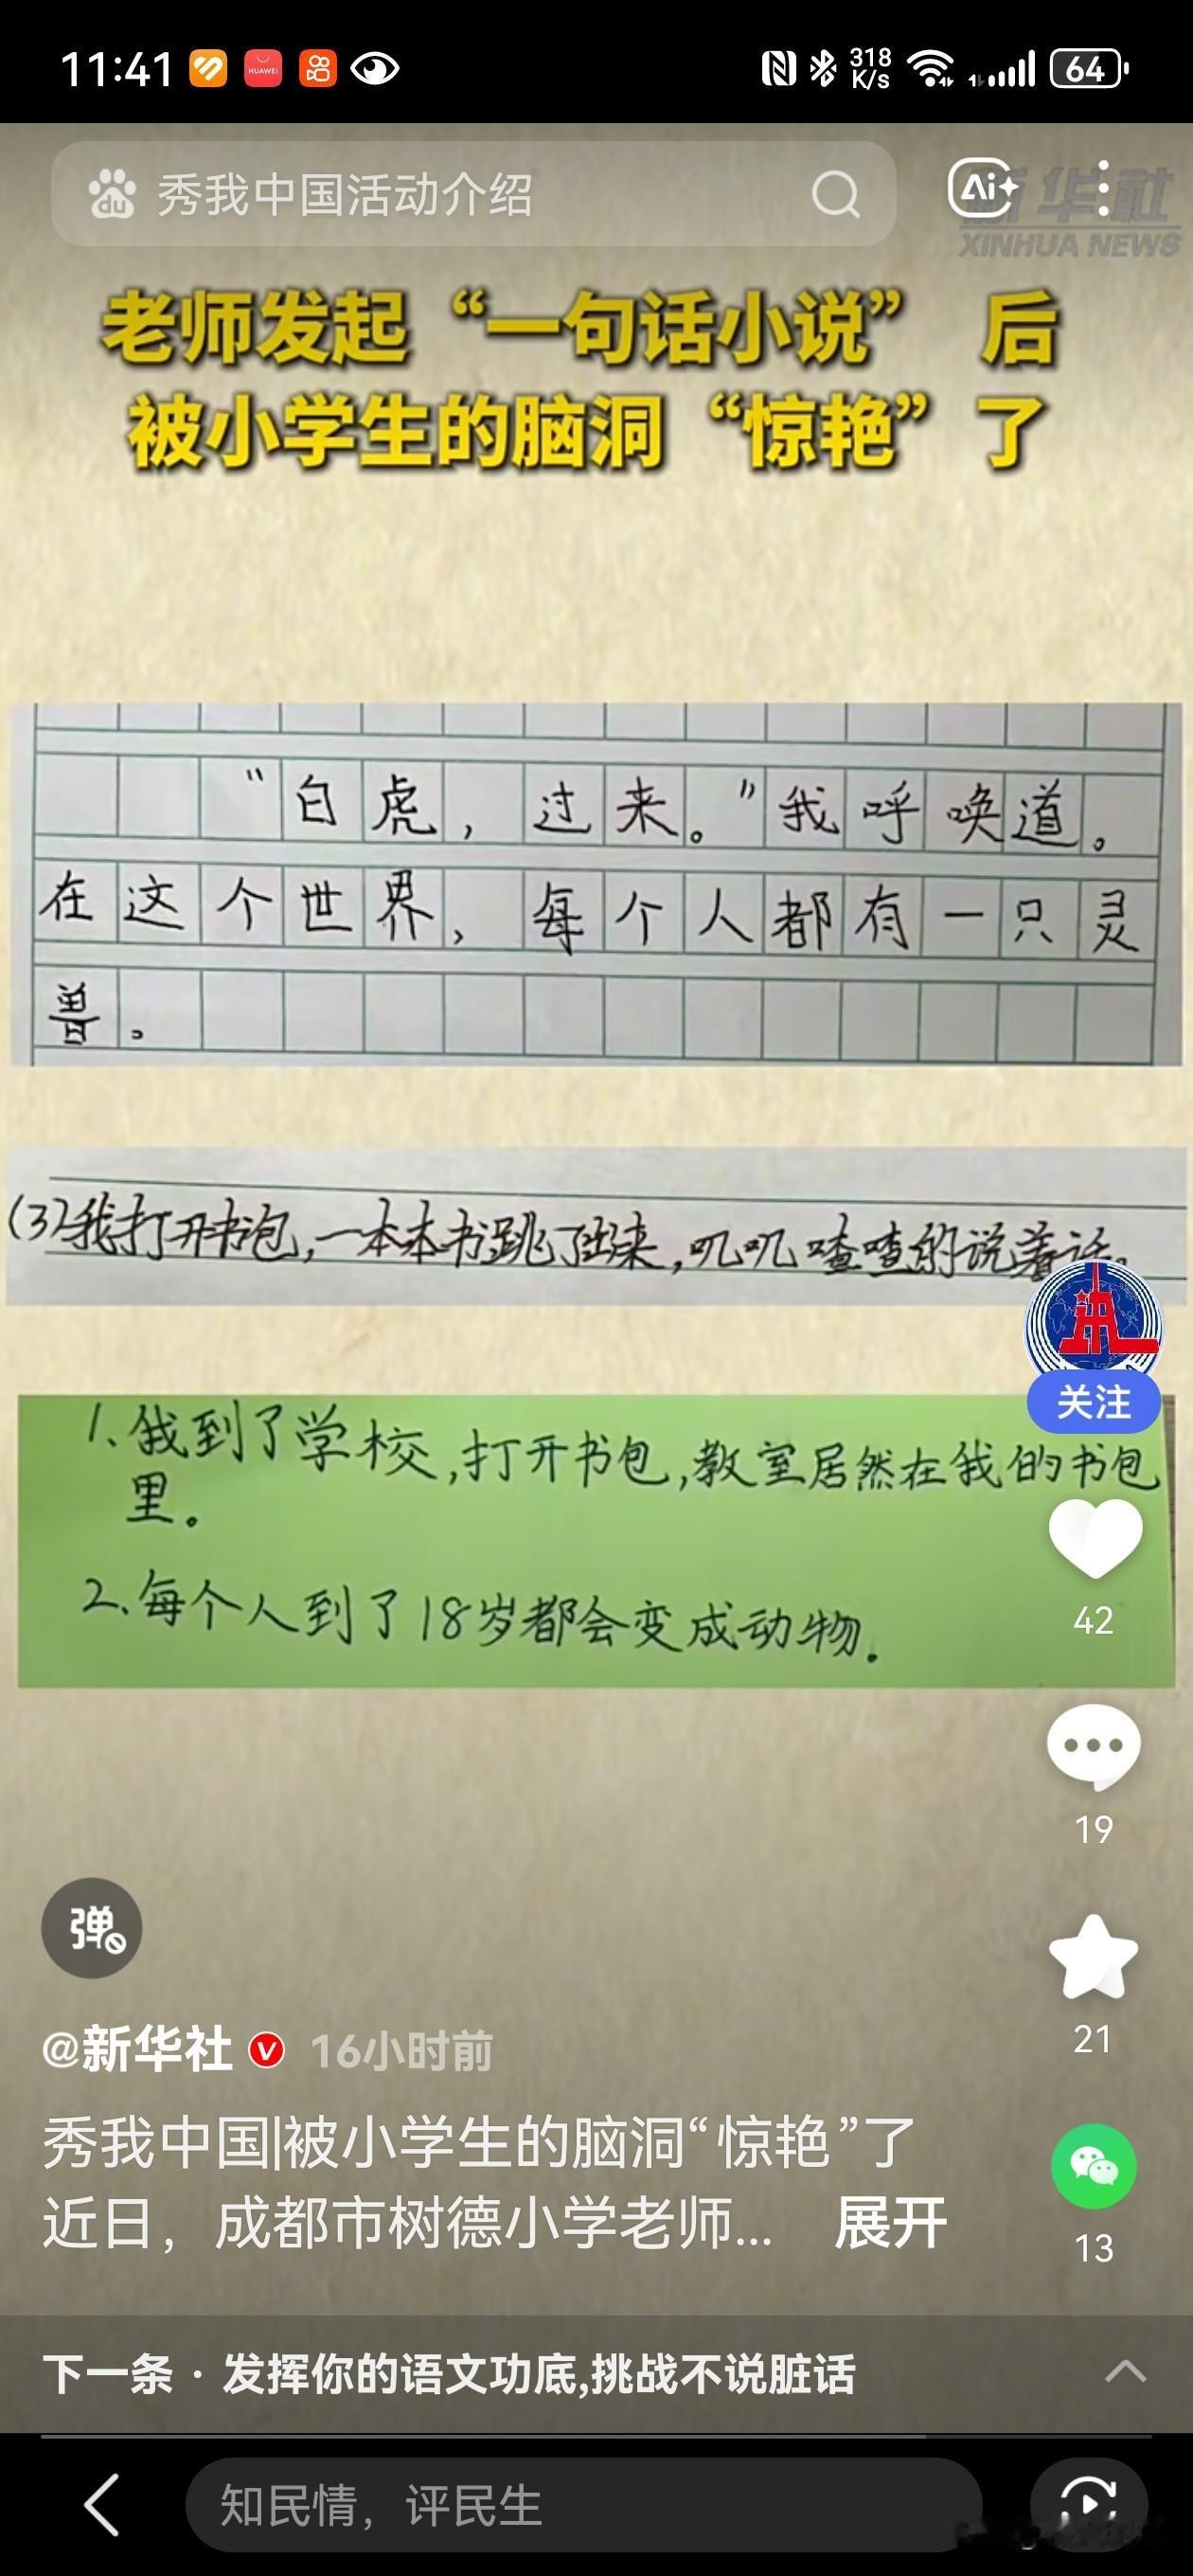 11:41
HUAWEI
318
K/s
64
秀我中国活动介绍
Ai
新华社
XINHUA NEWS
老师发起“一句话小说” 后
被小学生的脑洞“惊艳”了
“白虎，过来。”我呼唤道。
在这个世界，每个人都有一只灵
兽。
(3)我打开书包,一本本书跳了出来,叽叽喳喳的说着话。
关注
1.我到了学校,打开书包,教室居然在我的书包
里。
2.每个人到了18岁都会变成动物.
42
19
弹
21
@新华社 16小时前
秀我中国|被小学生的脑洞“惊艳”了
近日，成都市树德小学老师... 展开
13
下一条 · 发挥你的语文功底,挑战不说脏话
知民情，评民生